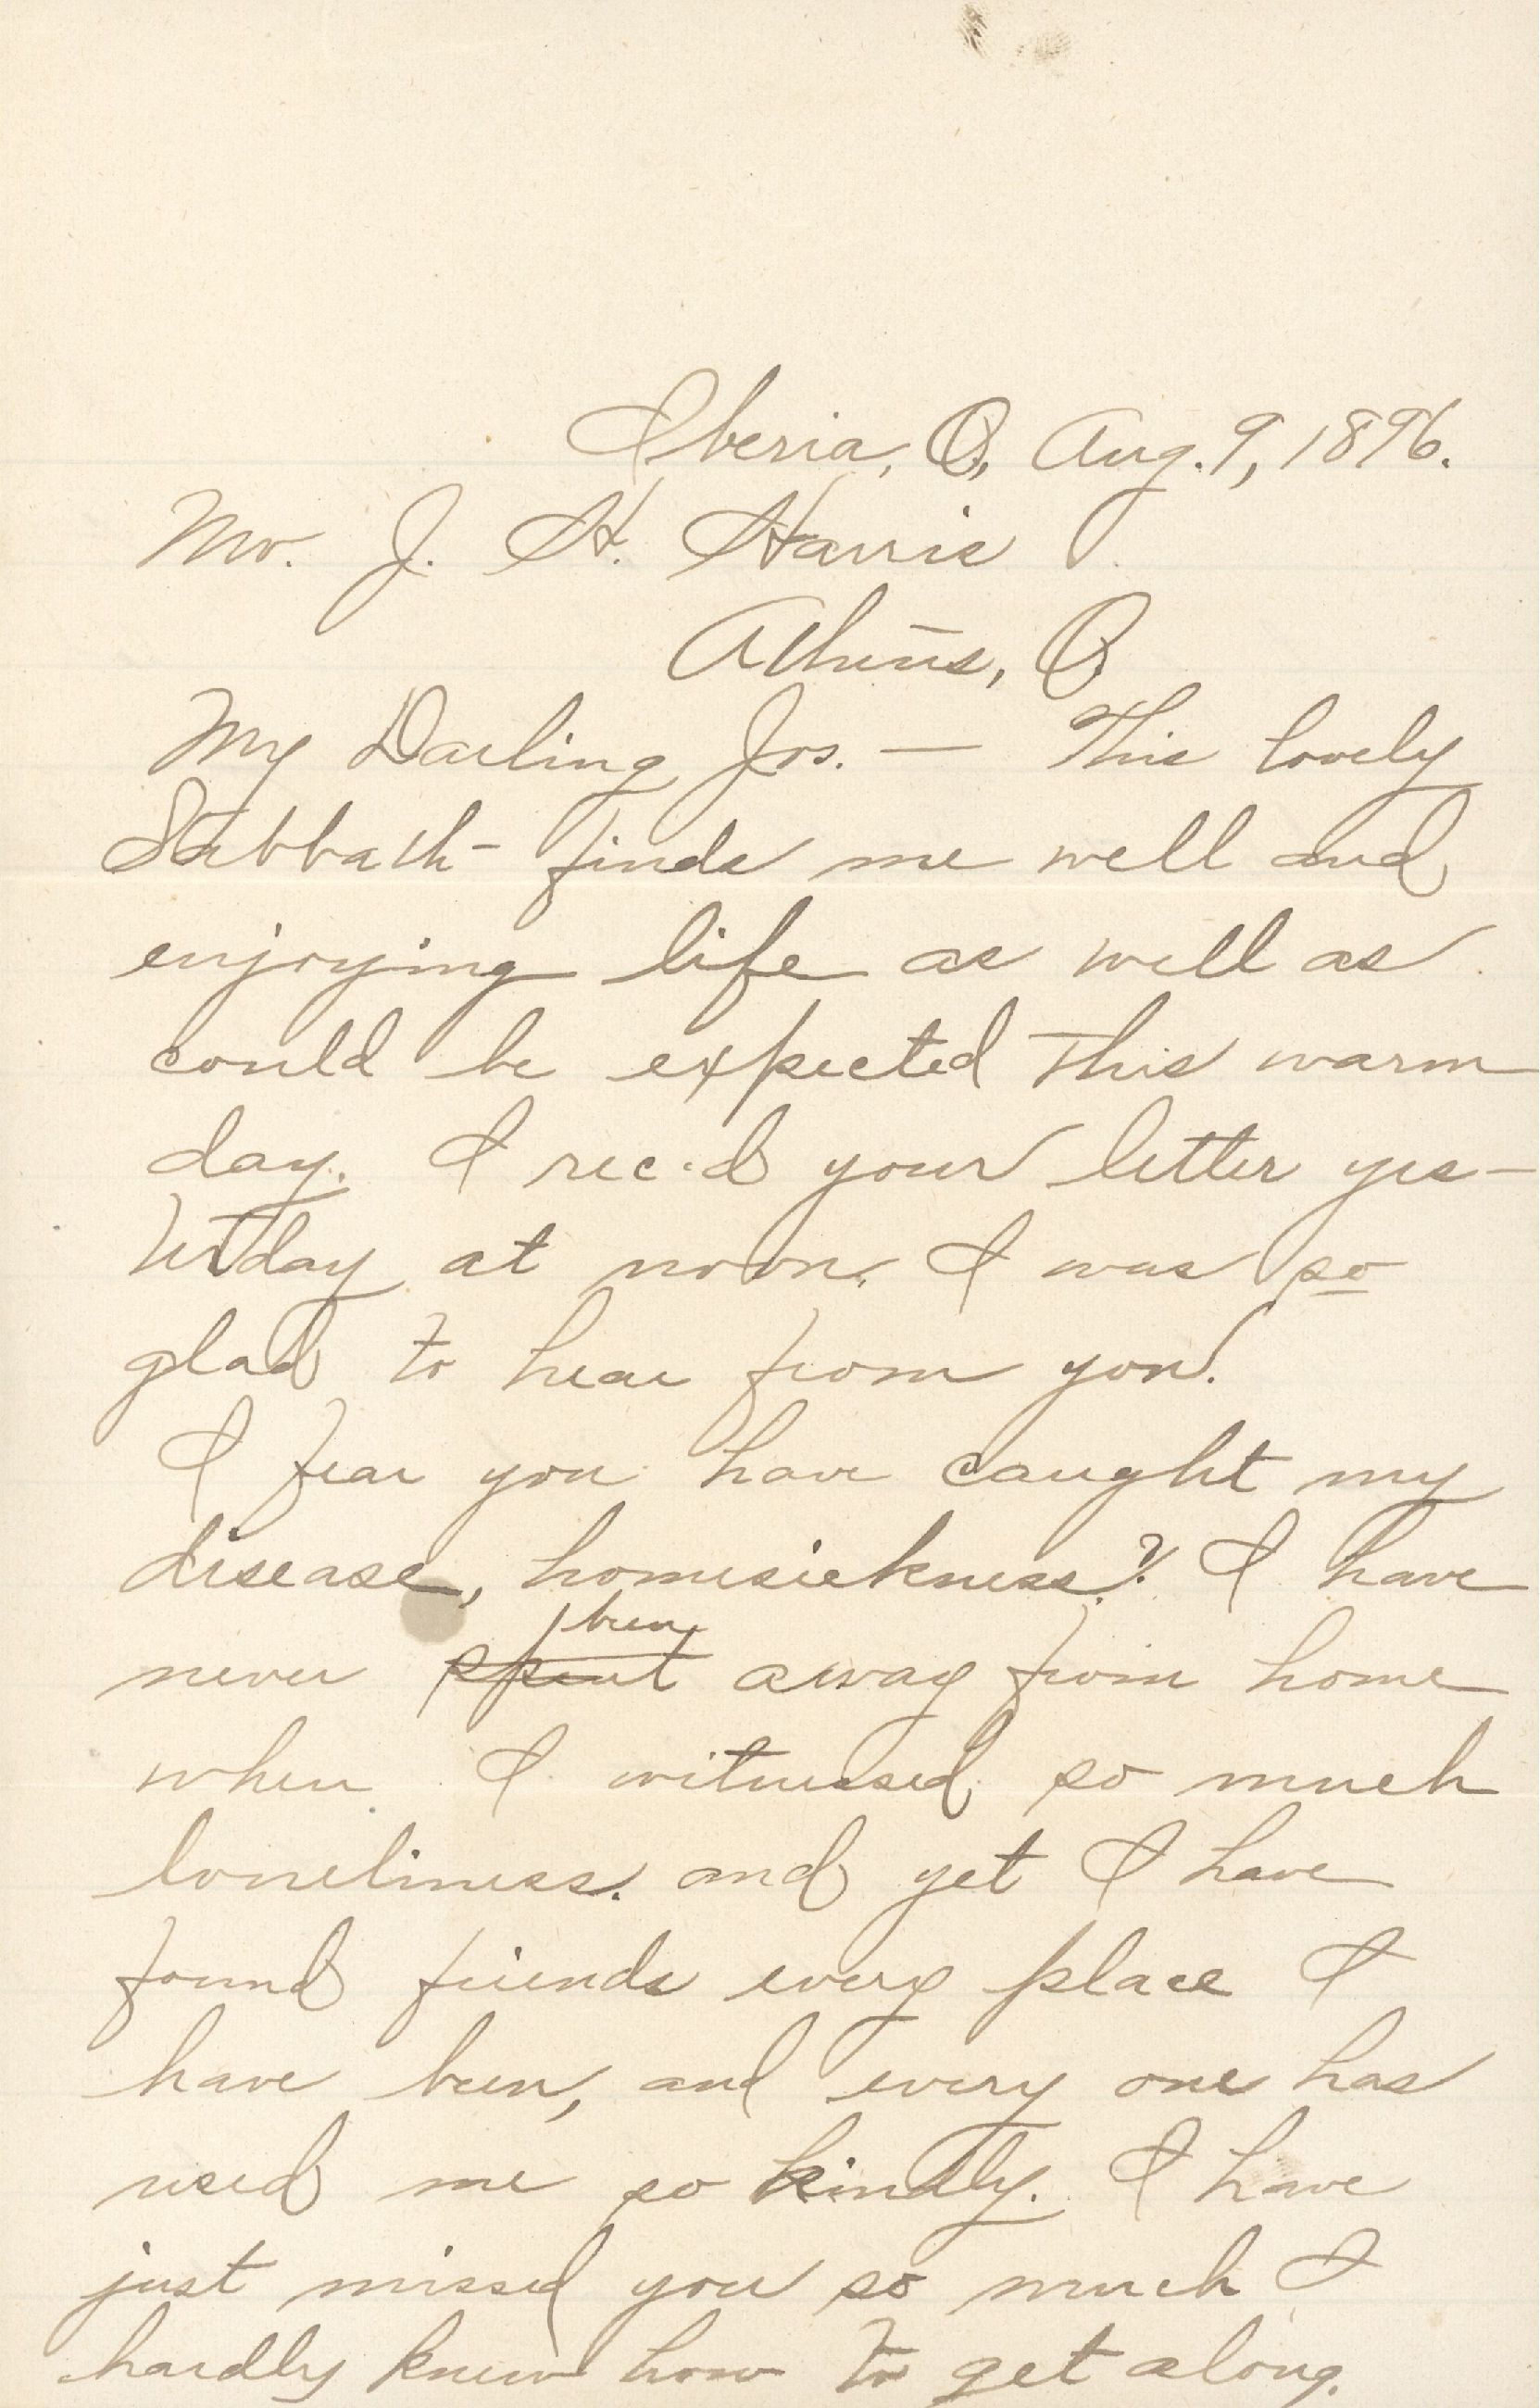 Iberia, O., Aug. 9, 1896.
Mr. J. H. Harris
Athens, O.
My Darling Jos. — This lovely
Sabbath finds me well and
enjoying life as well as
could be expected this warm
day. I rec'd your letter yes-
terday at noon. I was so
glad to hear from you.
I fear you have caught my
disease, homesickness? I have
never spent been away from home
when I witnessed so much
loneliness. and yet I have
found friends every place I
have been, and every one has
used me so kindly. I have
just missed you so much I
hardly knew how to get along.